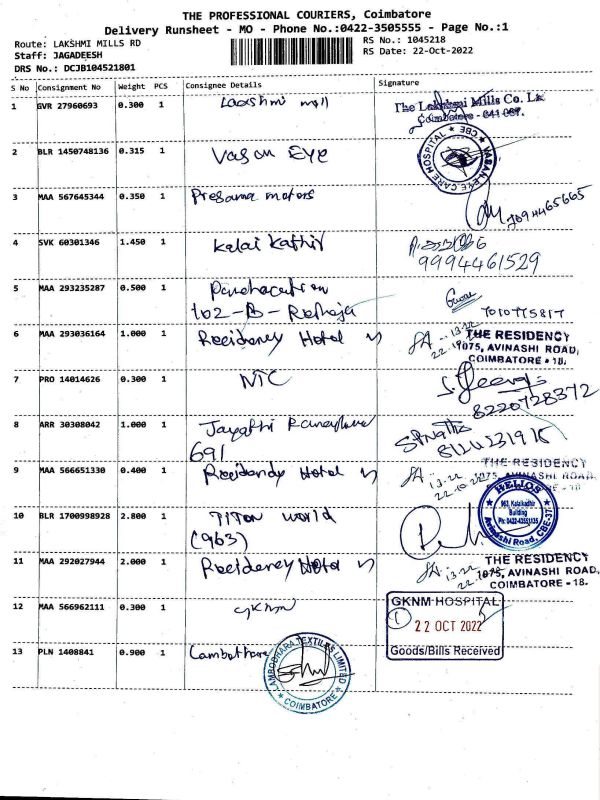 THE PROFESSIONAL COURIERS, Coimbatore
Delivery Runsheet - MO - Phone No.:0422-3505555 - Page No.:1
Route: LAKSHMI MILLS RD
RS No.: 1045218
Staff: JAGADEESH
RS Date: 22-Oct-2022
DRS No.: DCJB104521801
S No Consignment No Weight PCS Consignee Details Signature
1 GVR 27960693 0.300 1 Laxshmi mill
The Lakshmi Mills Co. Ltd
Coimbatore - 641 037.
2 BLR 1450748136 0.315 1 Vasan Eye
VASAN EYE CARE HOSPITAL ★ CBE ★
3 MAA 567645344 0.350 1 Presana motors
7094465665
4 SVK 60301346 1.450 1 Kalai Kathir
9994461529
5 MAA 293235287 0.500 1
102-B-Raheja
6 MAA 293036164 1.000 1 Residency Hotel
THE RESIDENCY
1075, AVINASHI ROAD,
COIMBATORE - 18.
7 PRO 14014626 0.300 1 NTC
8220728372
8 ARR 30308042 1.000 1
691
9 MAA 566651330 0.400 1 Residency Hotel
THE RESIDENCY
1075, AVINASHI ROAD,
10 BLR 1700998928 2.800 1 Titan world
(963)
HELIOS
963, Kalaikadhir
Building
Ph: 0422-4355135
Avinashi Road, CBE-37
11 MAA 292027944 2.000 1 Residency Hotel
THE RESIDENCY
1075, AVINASHI ROAD,
COIMBATORE - 18.
12 MAA 566962111 0.300 1 GKNM
GKNM HOSPITAL
1
22 OCT 2022
Goods/Bills Received
13 PLN 1408841 0.900 1 Lambothara
LAMBODHARA TEXTILES LIMITED
★ COIMBATORE ★